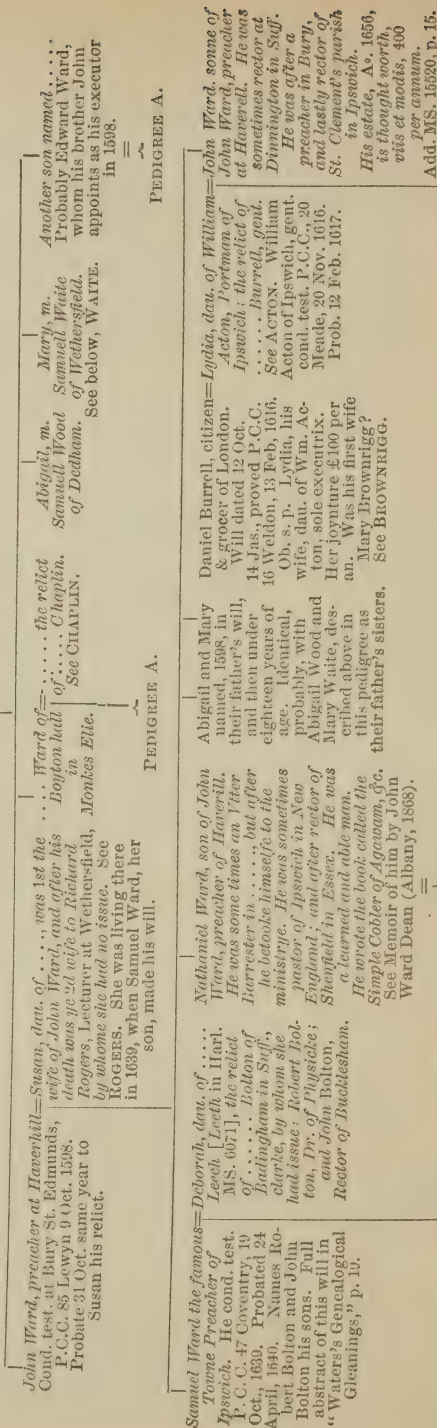 John Ward, preacher at Haverhill=Susan, dau. of ....., was 1st the
Cond. test. at Bury St. Edmunds,
P.C.C. 85 Lewyn 9 Oct. 1598.
Probate 31 Oct. same year to
Susan his relict.
wife of John Ward, and after his
death was ye 2d wife to Richard
Rogers, Lecturer at Wethersfield,
by whome she had no issue. See
ROGERS. She was living there
in 1639, when Samuel Ward, her
son, made his will.
..... Ward of=...... the relict
Boyton hall of..... Chaplin.
in See CHAPLIN.
Monkes Elie.
PEDIGREE A.
Abigail, m.
Samuell Wood
of Dedham.
Mary, m.
Samuell Waite
of Wethersfield.
See below, WAITE.
Another son named .....
Probably Edward Ward,
whom his brother John
appoints as his executor
in 1598.
=
PEDIGREE A.
Samuel Ward the famous=Deborah, dau. of .....
Towne Preacher of
Ipswich. He cond. test.
P. C. C. 47 Coventry, 19
Oct., 1639. Probated 24
April, 1640. Names Ro-
bert Bolton and John
Bolton his sons. Full
abstract of this will in
“Waters's Genealogical
Gleanings,” p. 19.
Leech [Leeth in Harl.
MS. 6071], the relict
of ...... Bolton of
Badingham in Suff.,
clarke, by whom she
had issue: Robert Bol-
ton, Dr. of Physicke;
and John Bolton,
Rector of Bucklesham.
Nathaniel Ward, son of John
Ward, preacher of Haverill.
He was some times an Vtter
Barrester in ......, but after
he betooke himselfe to the
ministrye. He was sometimes
pastor of Ipswich in New
England; and after rector of
Shenfield in Essex. He was
a learned and able man.
He wrote the book called the
Simple Cobler of Agawam, &c.
See Memoir of him by John
Ward Dean (Albany, 1868).
=
Abigail and Mary
named, 1598, in
their father's will,
and then under
eighteen years of
age. Identical,
probably, with
Abigail Wood and
Mary Waite, des-
cribed above in
this pedigree as
their father's sisters.
Daniel Burrell, citizen=Lydia, dau. of William=John Ward, sonne of
& grocer of London.
Will dated 12 Oct.
14 Jas., proved P.C.C.
16 Weldon, 13 Feb, 1616.
Ob. s. p. Lydia, his
wife, dau. of Wm. Ac-
ton, sole executrix.
Her joynture £100 per
an. Was his first wife
Mary Brownrigg?
See BROWNRIGG.
Acton, Portman of
Ipswich; the relict of
...... Burrell, gent.
See ACTON. William
Acton of Ipswich, gent.
cond. test. P.C.C., 20
Meade, 20 Nov. 1616.
Prob. 12 Feb. 1617.
John Ward, preacher
at Haverell. He was
sometimes rector at
Dinnington in Suff.
He was after a
preacher in Bury,
and lastly rector of
St. Clement's parish
in Ipswich.
His estate, Ao. 1656,
is thought worth,
viis et modis, 400
per annum.
Add. MS. 15520, p. 15.